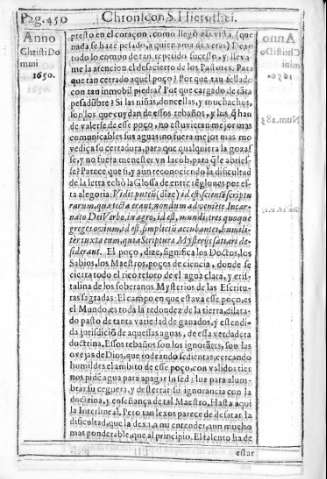 Pag. 450 Chronicon S. Hierothei.
Anno
Christi Do
mini
1650.
presto en el coraçon, como llegò a la vista, (que
nada se haze pesado, a quien ama de veras) Pe
todo lo compo de tan tropeudo sucesso, y lleva
me la atencion el desacierto de los Pastores. Para
que tan cerrado aquel poço? Por que tan sellado
con tan inmobil piedra? Por que cargado de tāta
pesadūbre? Si las niñas, doncellas, y muchachos,
son los que cuydan de essos rebaños, y los q̄ han
de valerse de esse poço, no estuviera mejor mas
comunicables sus aguas? no fuera mejor mas mo
vediça so cerradura, para que qualquiera la goza
se, y no fuera menester vn Iacob, para q̄ le abries-
se? Parece que si, y aun reconociendo la dificultad
de la letra echò la Glossa de entre reglones por es-
ta alegoria. Vidit puteū (dize) id est, scientiā scriptu
rarum, quæ tecta erant, nondum adveniēte Incar-
nato Dei Verbo, in agro, id est, mundi, tres quoque
greges ovium, id est, simplicia accubantes, humili-
ter iuxta eum, quia Scripturæ Mysterijs satiari de-
siderant. El poço, dize, significa los Doctos, los
Sabios, los Maestros, poços de ciencia, donde se
cierra todo el rico retoño de el agua clara, y cris-
talina de los soberanos Mysterios de las Escritu-
ras sagradas. El campo en que estava esse poço, es
el Mundo, es toda la redondez de la tierra, dilata-
do pasto de tanta variedad de ganados, y estendi-
da jurisdiciō de aquessas aguas, de esta verdadera
doctrina. Essos rebaños son los ignorātes, son las
ovejas de Dios, que rodeando sedientas, cercando
humildes el ambito de esse poço, con validos tier
nos pidē agua para apagar su sed; luz para alum-
brar su ceguera, y desterrar su ignorancia con la
doctrina, y enseñança de tal Maestro. Hasta aqui
la Interlineal. Pero tan lexos parece de desatar la
dificultad, que la dexa, a mi entender, aun mucho
mas ponderable, que al principio. El talento ha de
estar